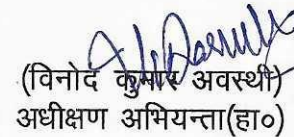 (विनोद कुमार अवस्थी)
अधीक्षण अभियन्ता(हा०)